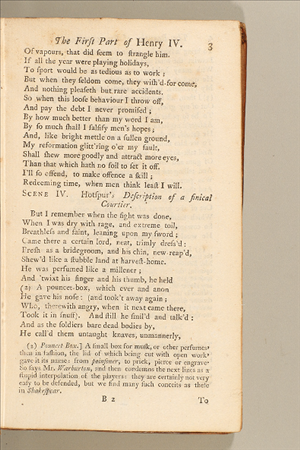 The Firſt Part of Henry IV. 3
Of vapours, that did ſeem to ſtrangle him.
If all the year were playing holidays,
To ſport would be as tedious as to work;
But when they ſeldom come, they wiſh'd-for come,
And nothing pleaſeth but rare accidents.
So when this looſe behaviour I throw off,
And pay the debt I never promiſed;
By how much better than my word I am,
By ſo much ſhall I falſify men's hopes;
And, like bright mettle on a ſullen ground,
My reformation glitt'ring o'er my fault,
Shall ſhew more goodly and attract more eyes,
Than that which hath no foil to ſet it off.
I'll ſo offend, to make offence a ſkill;
Redeeming time, when men think leaſt I will.
SCENE IV. Hotſpur's Deſcription of a finical
Courtier.
But I remember when the fight was done,
When I was dry with rage, and extreme toil,
Breathleſs and faint, leaning upon my ſword;
Came there a certain lord, neat, trimly dreſs'd:
Freſh as a bridegroom, and his chin, new-reap'd,
Shew'd like a ſtubble land at harveſt-home.
He was perfumed like a milliner;
And 'twixt his finger and his thumb, he held
(2) A pouncet-box, which ever and anon
He gave his noſe: (and took't away again;
Who, therewith angry, when it next came there,
Took it in ſnuff). And ſtill he ſmil'd and talk'd:
And as the ſoldiers bare dead bodies by,
He call'd them untaught knaves, unmannerly,
(2) Pouncet Box.] A ſmall box for muſk, or other perfumes
then in faſhion, the lid of which being cut with open work
gave it its name: from poinſoner, to prick, pierce or engrave
So ſays Mr. Warburton, and then condemns the next lines as a
ſtupid interpolation of the players: they are certainly not very
eaſy to be defended, but we find many ſuch conceits as theſe
in Shakeſpear.
B 2 To